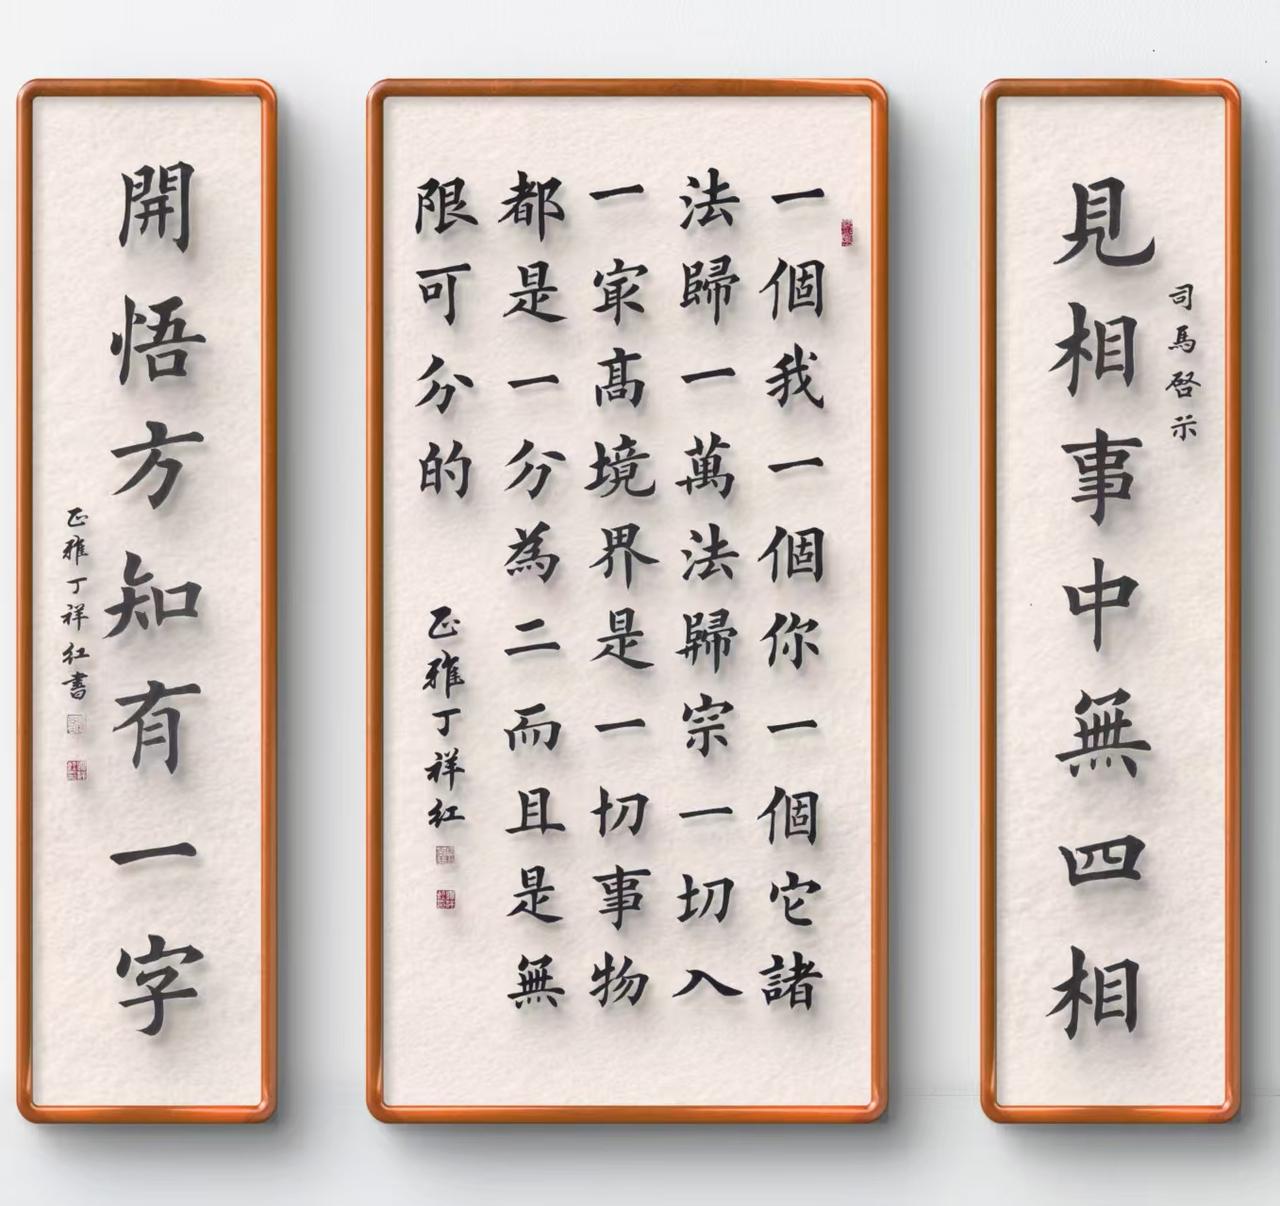 見相事中無四相
司馬啓示
一個我一個你一個它諸
法歸一萬法歸宗一切入
一㝡髙境界是一切事物
都是一分為二而且是無
限可分的
正雅丁祥紅
開悟方知有一字
正雅丁祥紅書